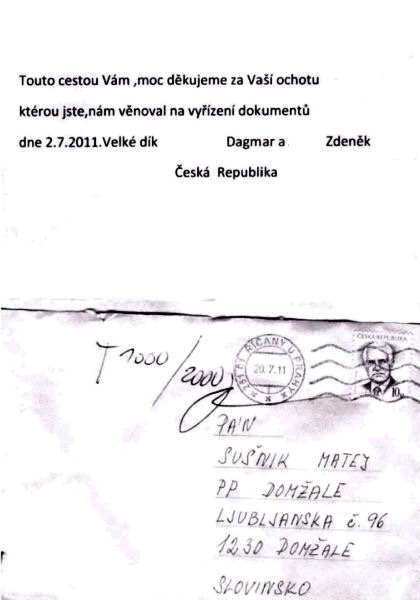 Touto cestou Vám ,moc děkujeme za Vaší ochotu
ktérou jste,nám věnoval na vyřízení dokumentů
dne 2.7.2011.Velké dík Dagmar a Zdeněk
Česká Republika
T 1000/2000
251 01 ŘÍČANY U PRAHY
20.7.11
ČESKÁ REPUBLIKA
10
PAN
SUŠNIK MATEJ
PP DOMŽALE
LJUBLJANSKA č. 96
1230 DOMŽALE
SLOVINSKO